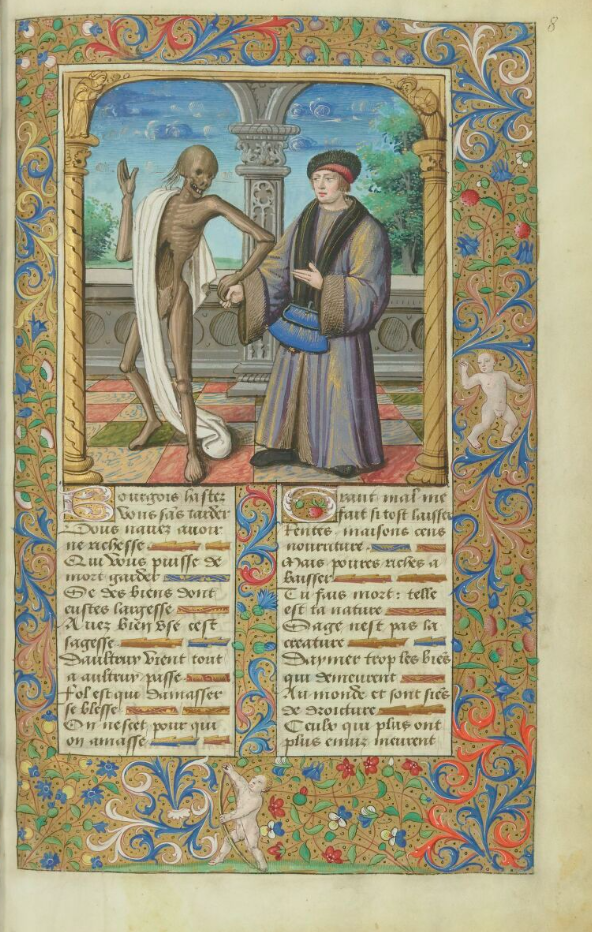 8
Bourgois hastez
vous sãs tarder
Vous navez avoir
ne richesse
Qui vous puisse de
mort garder
Se des biens dont
eustes largesse
Avez bien vse cest
sagesse
Daultruy vient tout
a aultruy passe
Fol est qui damasser
se blesse
On ne scet pour qui
on amasse
Grant mal me
fait si tost laisser
Rentes, maisons cens
nourriture
Mais poures riches a
baisser
Tu fais mort: telle
est ta nature
Sage nest pas la
creature
Daymer trop les biẽs
qui demeurent
Au monde et sont siẽs
de droicture
Ceulx qui plus ont
plus enuiz meurent